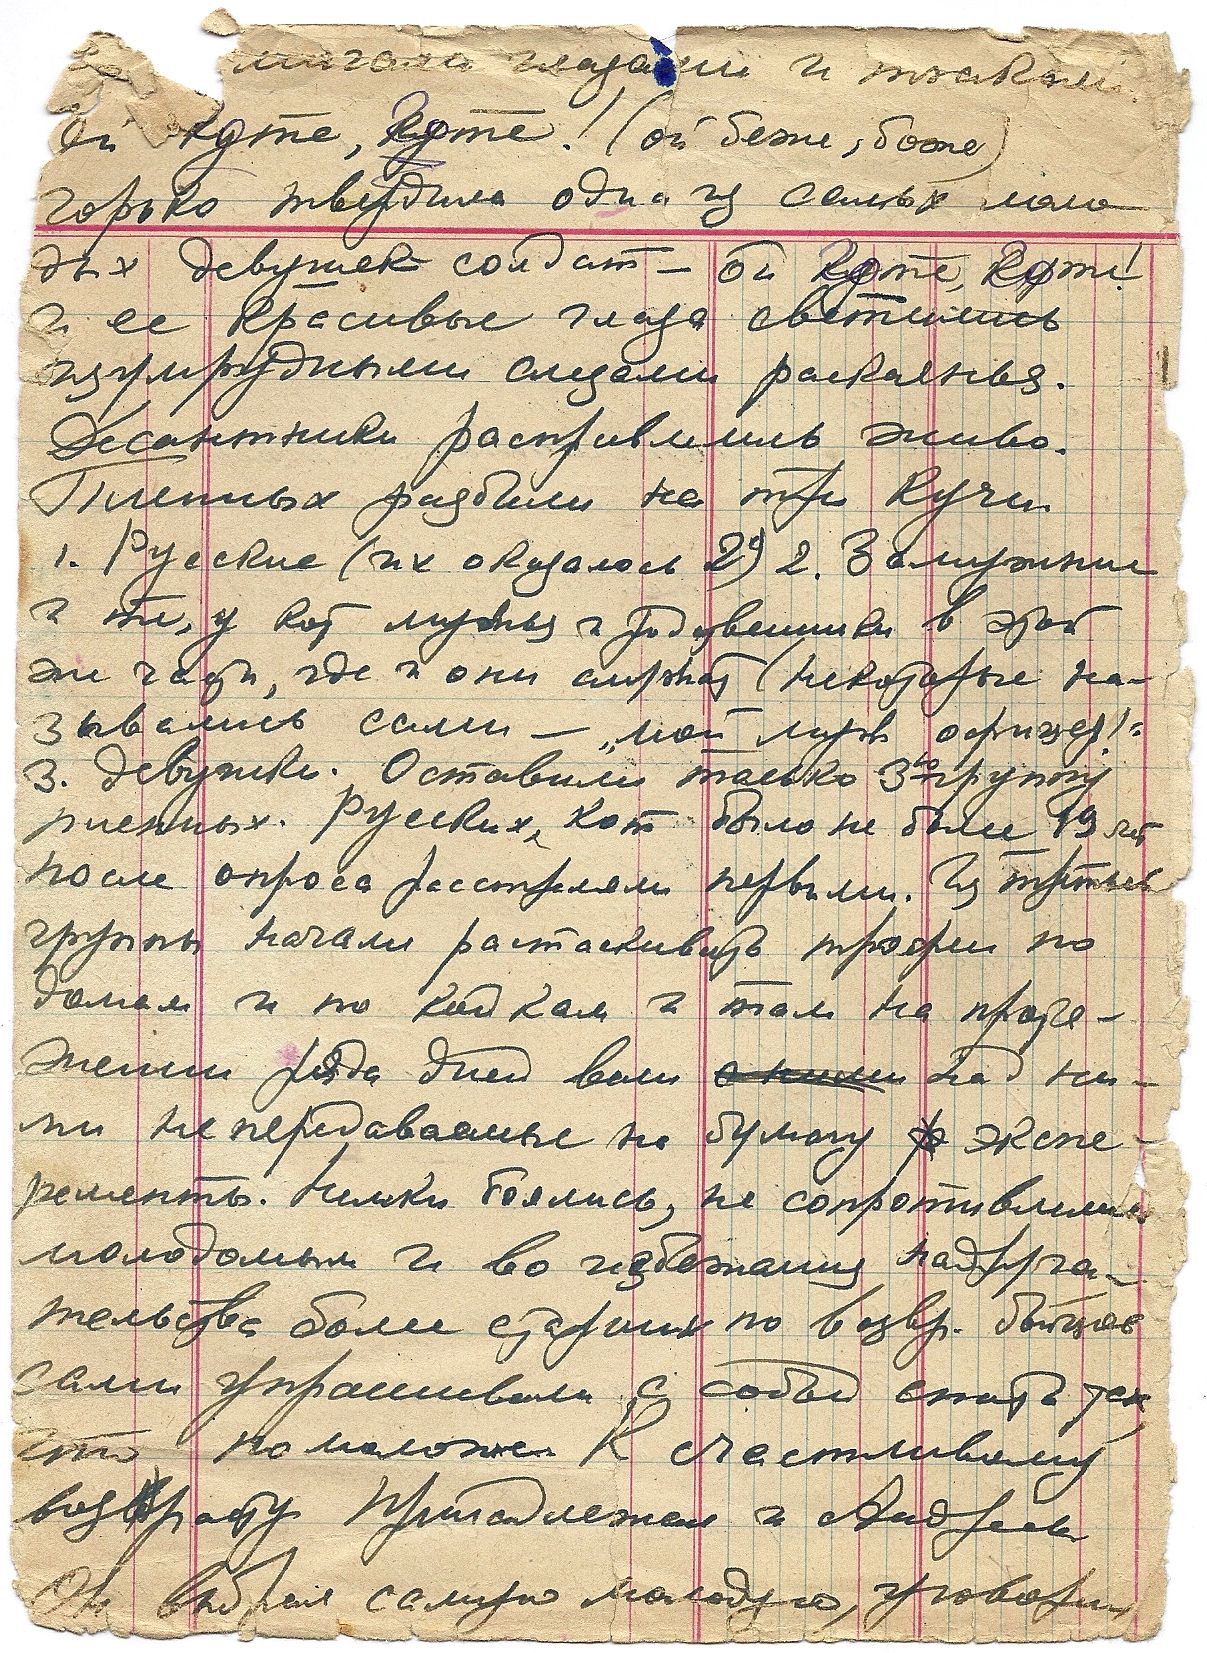 мигали глазами и
ой Котте, Котте! (ой боже, боже)
горько твердила одна из самых моло
дых девушек солдат — ой Котте, Котте!
и ее красивые глаза светились
изумрудными слезами раскаянья.
Десантники расправились живо.
Пленных разбили на три кучи
1. Русские (их оказалось 2) 2. Замужние
и те, у кот мужья и родственники в этой
же части, где и они служат (некоторые на-
зывались сами — „мой муж офицер!"
3. девушки. Оставили только 3ю группу
пленных. Русских, кот было не боле 19 лет
после опроса расстреляли первыми. Из третьей
группы начали растаскивать трофеи по
домам и по койкам и там на протя-
жении ряда дней вели с ними над ни-
ми непередаваемые на бумагу экспе-
ременты. Немки боялись, не сопротивлялись
молодым и во избежания надруга-
тельства боле старших по возвр. бойцов
сами упрашивали с собой спать тех
кто помоложе. К счастливому
возврасту принадлежал и Андреев
Он выбрал самую молодую,